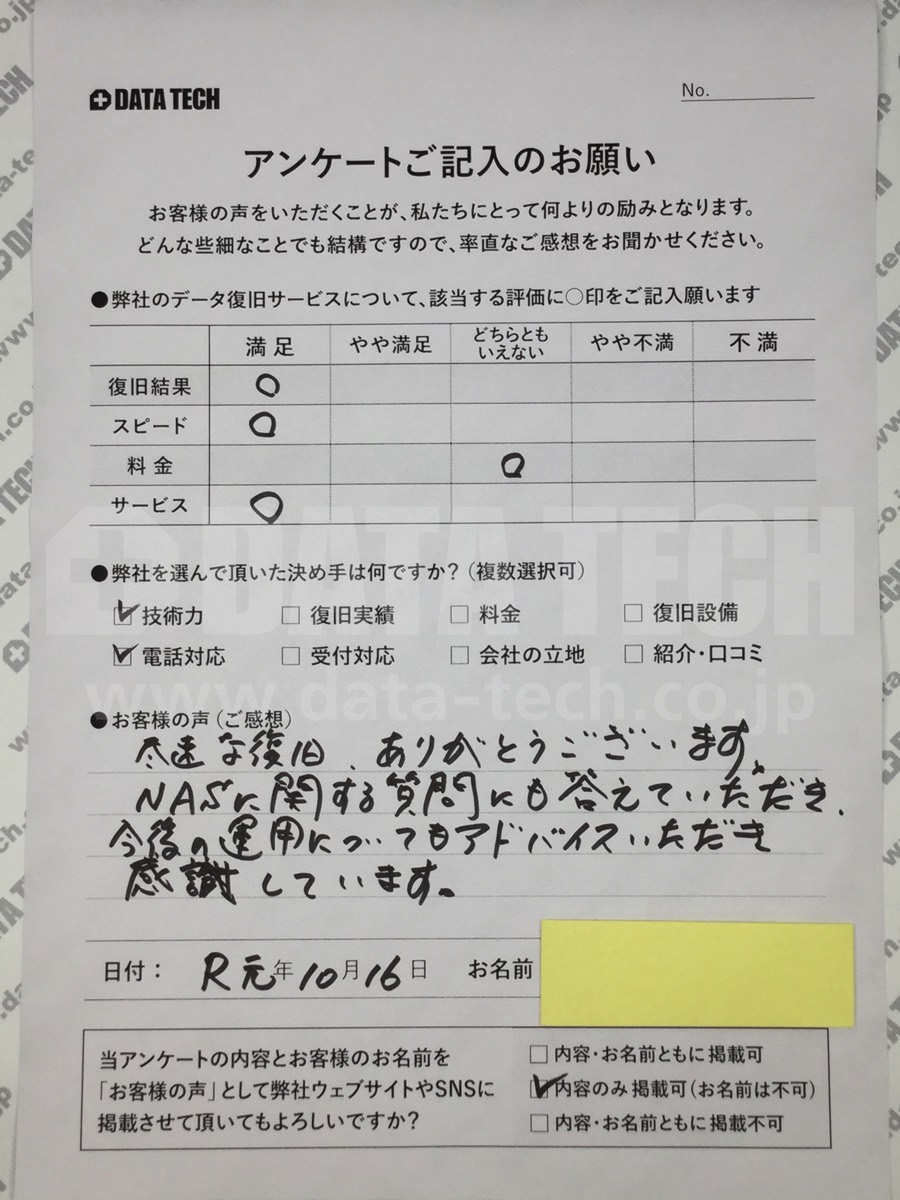 DATA TECH
No.
アンケートご記入のお願い
お客様の声をいただくことが、私たちにとって何よりの励みとなります。
どんな些細なことでも結構ですので、率直なご感想をお聞かせください。
●弊社のデータ復旧サービスについて、該当する評価に○印をご記入願います
満足 やや満足 どちらとも いえない やや不満 不満
復旧結果 ○
スピード ○
料金 ○
サービス ○
DATA TECH
●弊社を選んで頂いた決め手は何ですか？（複数選択可）
☑技術力 □復旧実績 □料金 □復旧設備
☑電話対応 □受付対応 □会社の立地 □紹介・口コミ
www.data-tech.co.jp
●お客様の声（ご感想）
な復旧、ありがとうございます。
NASに関する質問にも答えていただき、
今後の運用についてもアドバイスいただき
感謝しています。
日付： R元年10月16日 お名前
当アンケートの内容とお客様のお名前を
「お客様の声」として弊社ウェブサイトやSNSに
掲載させて頂いてもよろしいですか？
□内容・お名前ともに掲載可
☑内容のみ掲載可（お名前は不可）
□内容・お名前ともに掲載不可